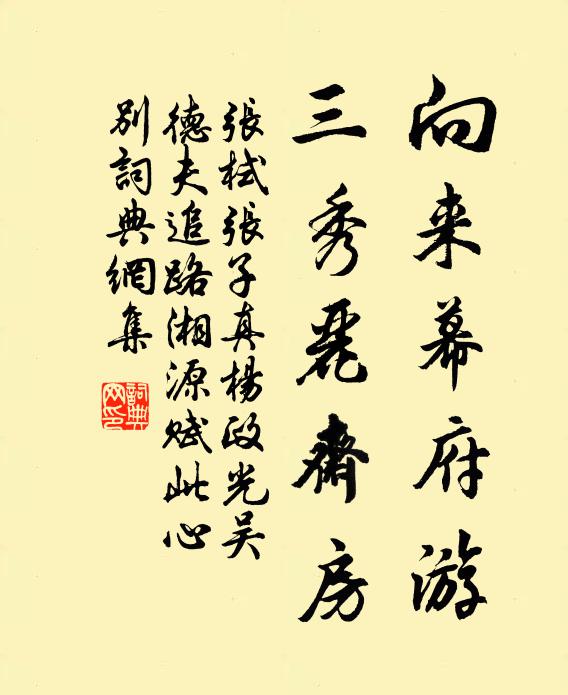 向来幕府游
三秀麗齋房
張栻張子真楊政光吴
德夫追路湘源赋此心
别詞典網集
詞典
网印